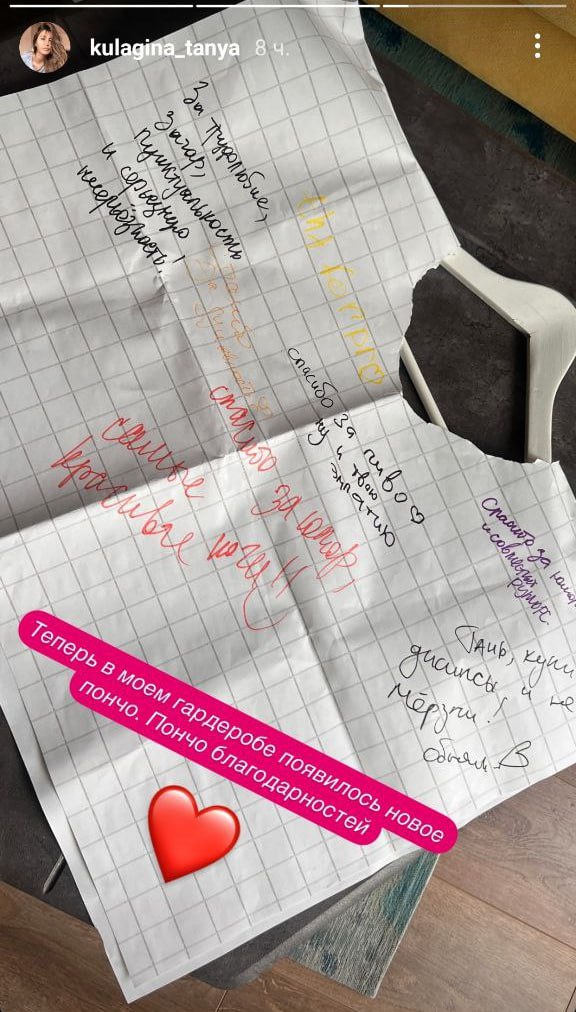 kulagina_tanya 8 ч.
За трудолюбие,
Загар,
пунктуальность
и серьезную
несерьёзность!
спасибо за пиво♡
ну и твою
эмпатию
спасибо за юмор,
самые
красивые ноги!!
спасибо за юмор
и совместный
Тань, купи
джинсы и не
мёрзни!
обняли. В
Теперь в моем гардеробе появилось новое
пончо. Пончо благодарностей